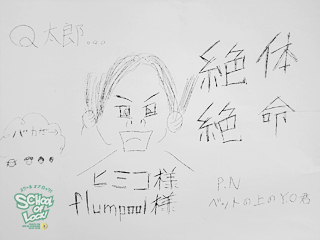 Q太郎...
絶体
絶命
バカヤロー
ヒミコ様
flumpool様
P.N
ベットの上のY.O君
SCHOOL OF LOCK!